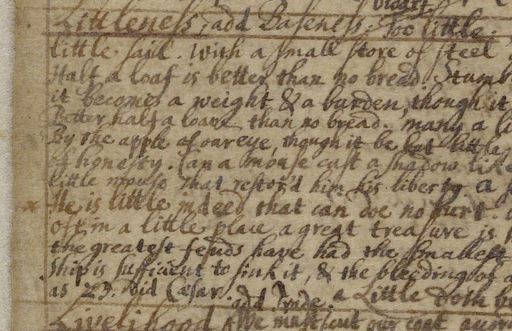 Littleness, add Baseness. Too little.
little said. With a small store of steel
Half a loaf is better than no bread. Stumb
it becomes a weight & a burden, though it
Better half a loane than no bread. many a li
By the apple of our eye, though it be but little
of honesty. Can a mouse cast a shadow like
little mouse that restor'd him his liberty. A
He is little indeed that can doe no hurt.
Oft in a little place a great treasure is
the greatest feuds have had the smallest
ship is sufficient to sink it, & the bleeding of a
as 23. did Cæsar. a Little doth
Livelihood add Trade. We must cut our coat accor